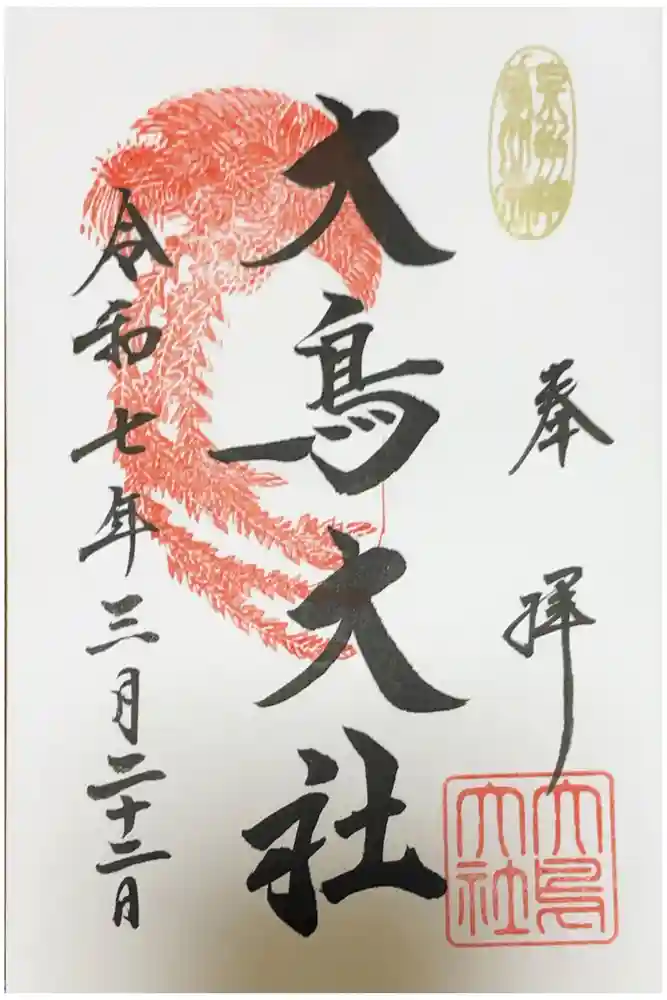 奉拝
大鳥大社
令和七年三月二十二日
大鳥
大社